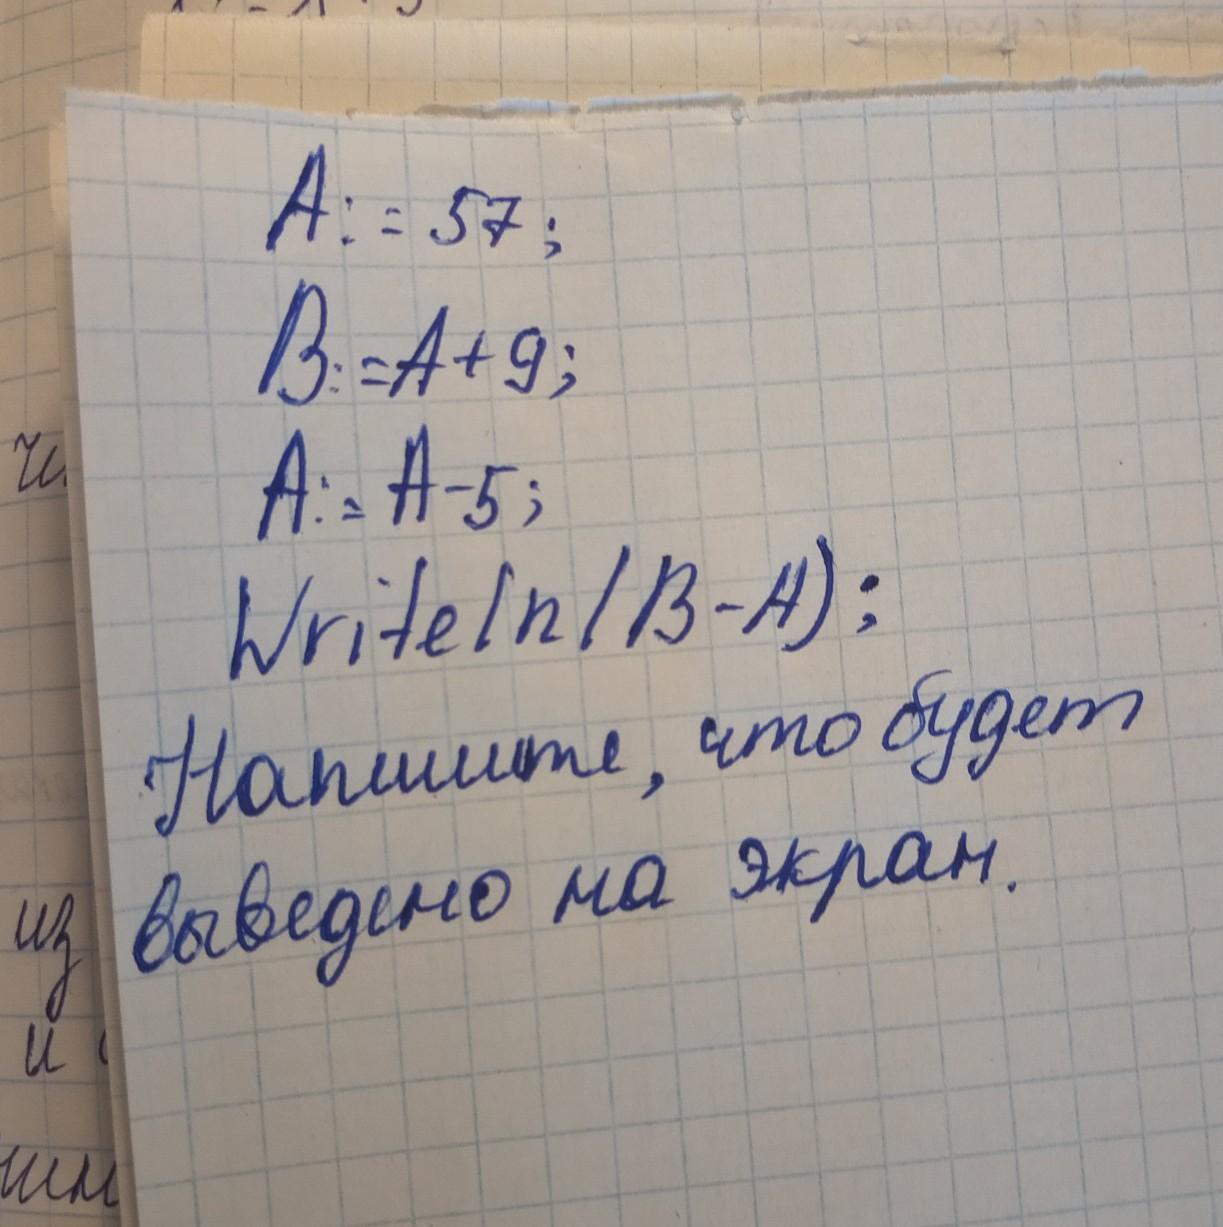 A:=57;
B:=A+9;
A:=A-5;
Writeln(B-A);
Напишите, что будет
выведено на экран.
из
и